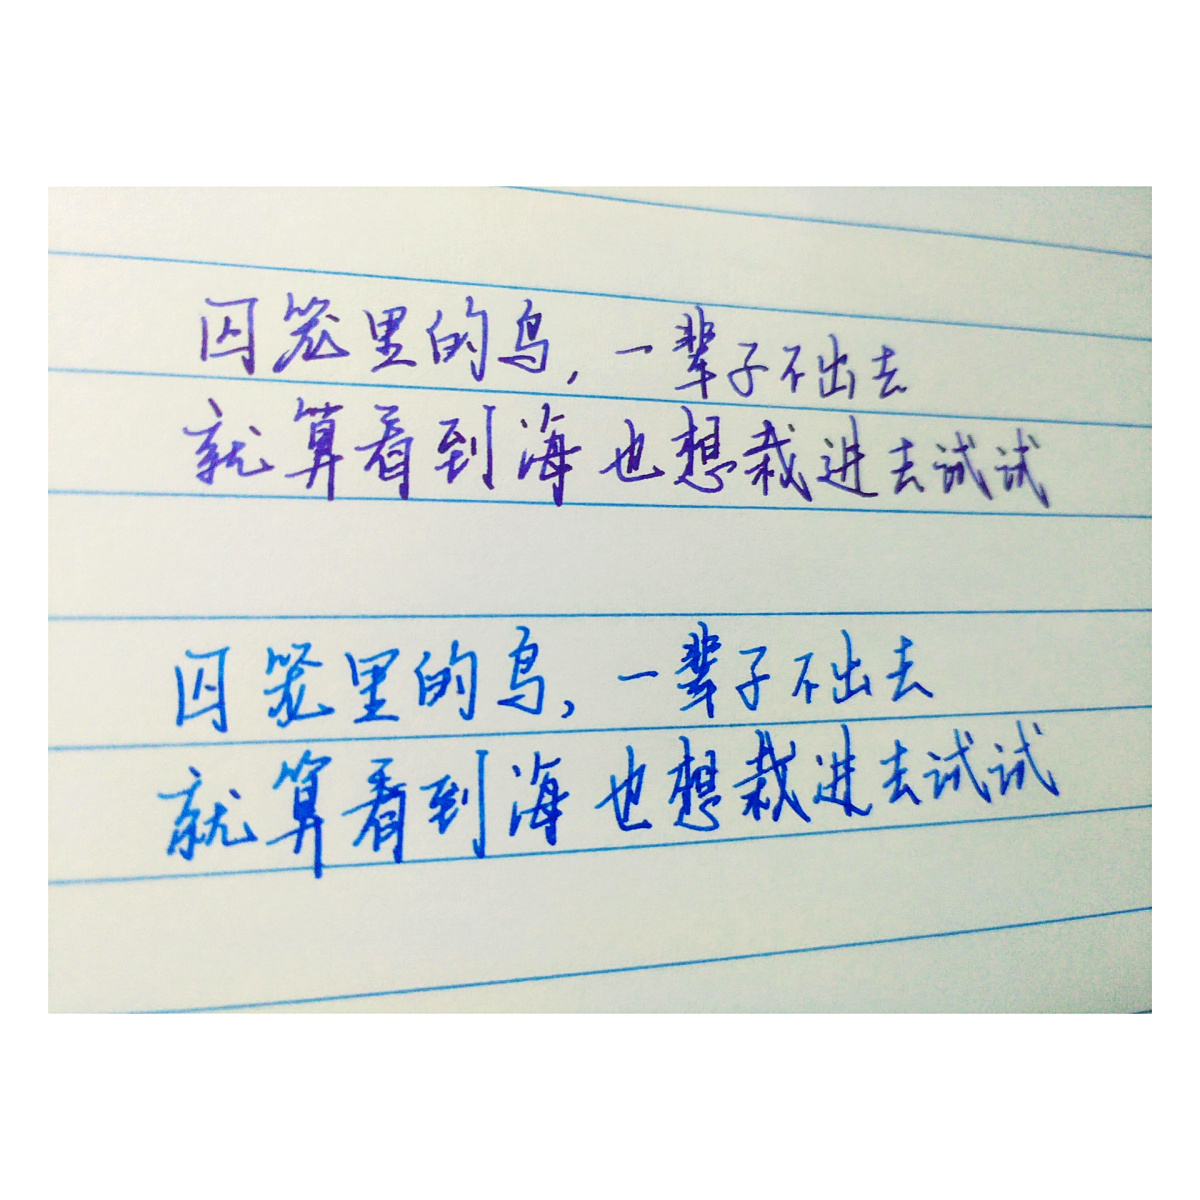 囚笼里的鸟,一辈子不出去
就算看到海也想栽进去试试
囚笼里的鸟,一辈子不出去
就算看到海也想栽进去试试